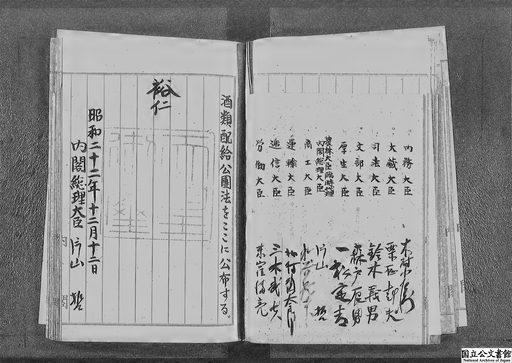 内務大臣
大蔵大臣 栗栖赳夫
司法大臣 鈴木義男
文部大臣 森戸辰男
厚生大臣 一松定吉
農林大臣臨時代理
内閣総理大臣 片山 哲
商工大臣
運輸大臣 北村徳太郎
逓信大臣 三木武夫
労働大臣 米窪満亮
酒類配給公團法をここに公布する。
裕仁
昭和二十二年十二月十二日
内閣総理大臣 片山 哲
内閣
国立公文書館
National Archives of Japan